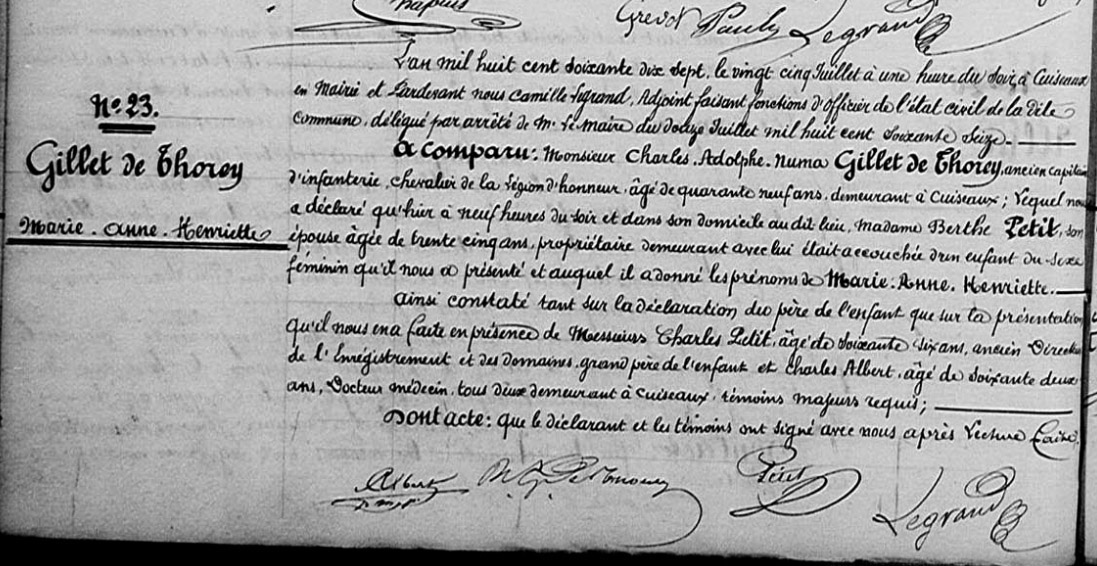 Chapuis
Grevot Pauly Legrand
L'an mil huit cent soixante dix sept, le vingt cinq Juillet à une heure du soir, à Cuiseaux
en Mairie et Pardevant nous Camille Legrand, Adjoint faisant fonctions d'officier de l'état civil de la dite
Commune, délégué par arrêté de Mr. le Maire du douze Juillet mil huit cent soixante Seize.
N° 23.
Gillet de Thorey
Marie. Anne. Henriette
a Comparu: Monsieur Charles. Adolphe. Numa Gillet de Thorey, ancien capitaine
d'infanterie, chevalier de la Légion d'honneur, âgé de quarante neuf ans, demeurant à Cuiseaux; Lequel nous
a déclaré qu'hier à neuf heures du soir et dans son domicile au dit lieu, Madame Berthe Petit, son
épouse âgée de trente cinq ans, propriétaire demeurant avec lui était accouchée d'un enfant du sexe
féminin qu'il nous a présenté et auquel il a donné les prénoms de Marie. Anne. Henriette.
ainsi constaté tant sur la déclaration du père de l'enfant que sur la présentation
qu'il nous en a faite en présence de Messieurs Charles Petit, âgé de soixante six ans, ancien Directeur
de l'Enrégistrement et des domaines, grand père de l'enfant et Charles Albert, âgé de soixante deux
ans, Docteur médecin, tous deux demeurant à Cuiseaux, témoins majeurs requis;
Dont acte: que le déclarant et les témoins ont signé avec nous après Lecture faite.
Albert Petit Legrand